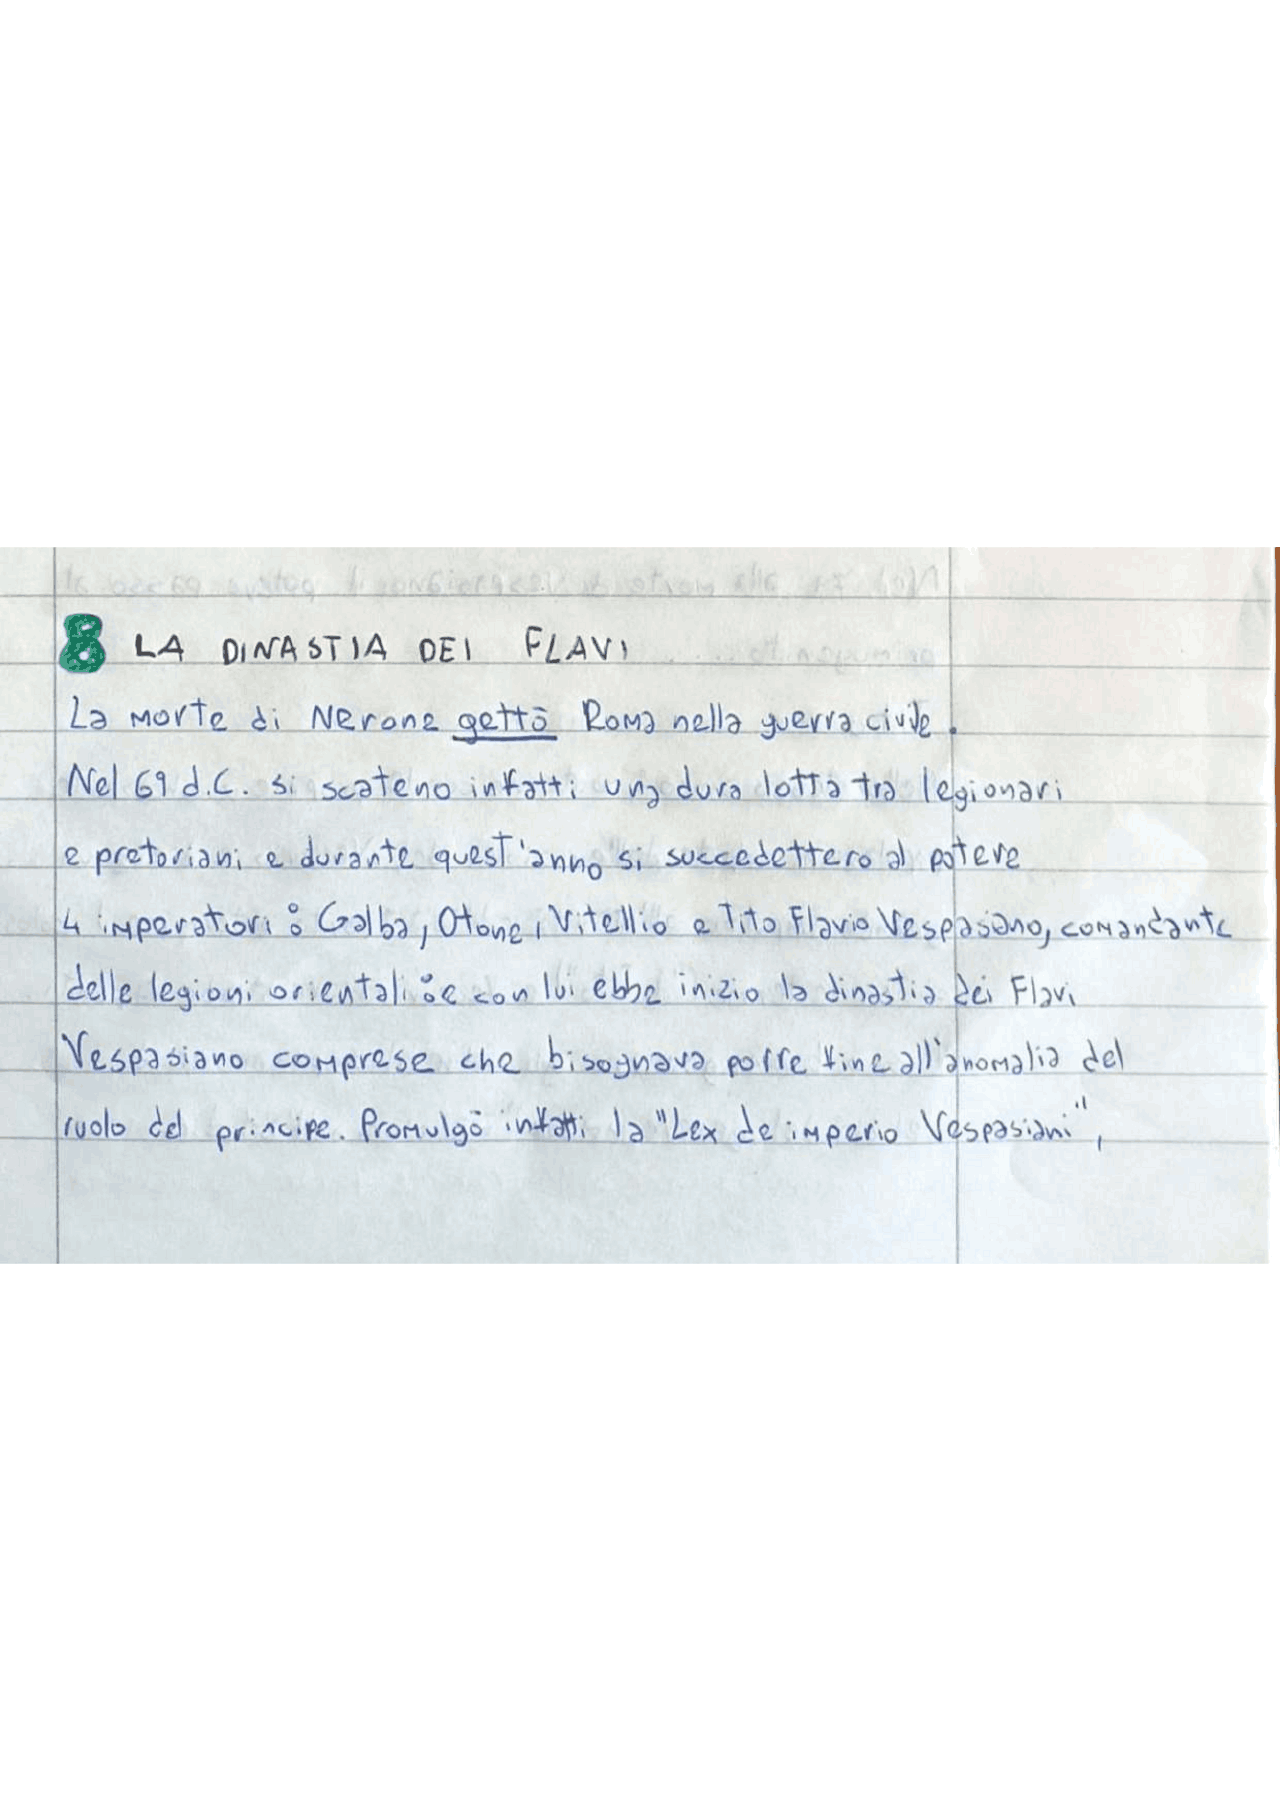 8 LA DINASTIA DEI FLAVI
La morte di Nerone gettò Roma nella guerra civile.
Nel 69 d.C. si scateno infatti una dura lotta tra legionari
e pretoriani e durante quest'anno si succedettero al potere
4 imperatori: Galba, Otone, Vitellio e Tito Flavio Vespasiano, comandante
delle legioni orientali: e con lui ebbe inizio la dinastia dei Flavi
Vespasiano comprese che bisognava porre fine all'anomalia del
ruolo del principe. Promulgò infatti la "Lex de imperio Vespasiani",